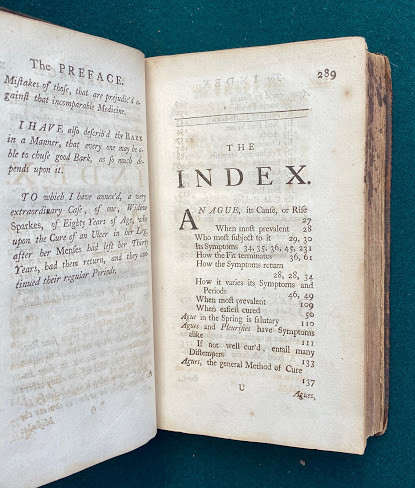 The PREFACE.
Mistakes of these, that are prejudic'd a-
gainst that incomparable Medicine.
I HAVE, also describ'd the BARK
in a Manner, that every one may be a-
ble to chuse good Bark, as so much de-
pends upon it.
TO which I have annex'd, a very
extraordinary Case, of one, Widow
Sparkes, of Eighty Years of Age, who
upon the Cure of an Ulcer in her Leg,
after her Menses had left her Thirty
Years, had them return, and they con-
tinued their regular Periods.
289
THE
INDEX.
AN AGUE, its Cause, or Rise
27
When most prevalent 28
Who most subject to it 29, 30
Its Symptoms 34, 35, 36, 45, 231
How the Fit terminates 36, 61
How the Symptoms return
28, 28, 34
How it varies its Symptoms and
Periods 46, 49
When most prevalent 109
When easiest cured 50
Ague in the Spring is salutary 110
Agues and Pleurisies have Symptoms
alike 111
If not well cur'd, entail many
Distempers 133
Agues, the general Method of Cure
137
U
Agues,